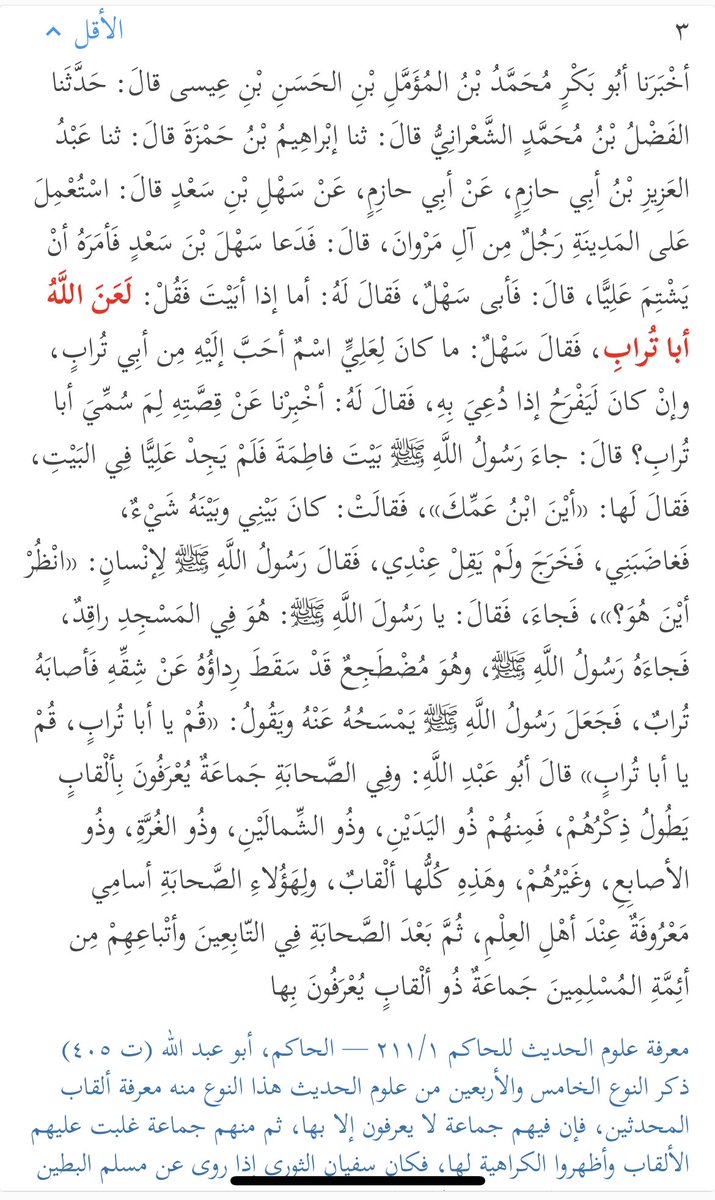 ٣
الأقل
أخْبَرَنا أبُو بَكْرٍ مُحَمَّدُ بْنُ المُؤَمَّلِ بْنِ الحَسَنِ بْنِ عِيسى قالَ: حَدَّثَنا
الفَضْلُ بْنُ مُحَمَّدٍ الشَّعْرانِيُّ قالَ: ثنا إبْراهِيمُ بْنُ حَمْزَةَ قالَ: ثنا عَبْدُ
العَزِيزِ بْنُ أبِي حازِمٍ، عَنْ أبِي حازِمٍ، عَنْ سَهْلِ بْنِ سَعْدٍ قالَ: اسْتُعْمِلَ
عَلى المَدِينَةِ رَجُلٌ مِن آلِ مَرْوانَ، قالَ: فَدَعا سَهْلَ بْنَ سَعْدٍ فَأمَرَهُ أنْ
يَشْتِمَ عَلِيًّا، قالَ: فَأبى سَهْلٌ، فَقالَ لَهُ: أما إذا أبَيْتَ فَقُلْ: لَعَنَ اللَّهُ
أبا تُرابٍ، فَقالَ سَهْلٌ: ما كانَ لِعَلِيٍّ اسْمٌ أحَبَّ إلَيْهِ مِن أبِي تُرابٍ،
وإنْ كانَ لَيَفْرَحُ إذا دُعِيَ بِهِ، فَقالَ لَهُ: أخْبِرْنا عَنْ قِصَّتِهِ لِمَ سُمِّيَ أبا
تُرابٍ؟ قالَ: جاءَ رَسُولُ اللَّهِ ﷺ بَيْتَ فاطِمَةَ فَلَمْ يَجِدْ عَلِيًّا فِي البَيْتِ،
فَقالَ لَها: «أيْنَ ابْنُ عَمِّكَ»، فَقالَتْ: كانَ بَيْنِي وبَيْنَهُ شَيْءٌ،
فَغاضَبَنِي، فَخَرَجَ ولَمْ يَقِلْ عِنْدِي، فَقالَ رَسُولُ اللَّهِ ﷺ لِإنْسانٍ: «انْظُرْ
أيْنَ هُوَ؟»، فَجاءَ، فَقالَ: يا رَسُولَ اللَّهِ ﷺ: هُوَ فِي المَسْجِدِ راقِدٌ،
فَجاءَهُ رَسُولُ اللَّهِ ﷺ، وهُوَ مُضْطَجِعٌ قَدْ سَقَطَ رِداؤُهُ عَنْ شِقِّهِ فَأصابَهُ
تُرابٌ، فَجَعَلَ رَسُولُ اللَّهِ ﷺ يَمْسَحُهُ عَنْهُ ويَقُولُ: «قُمْ يا أبا تُرابٍ، قُمْ
يا أبا تُرابٍ» قالَ أبُو عَبْدِ اللَّهِ: وفِي الصَّحابَةِ جَماعَةٌ يُعْرَفُونَ بِألْقابٍ
يَطُولُ ذِكْرُهُمْ، فَمِنهُمْ ذُو اليَدَيْنِ، وذُو الشِّمالَيْنِ، وذُو الغُرَّةِ، وذُو
الأصابِعِ، وغَيْرُهُمْ، وهَذِهِ كُلُّها ألْقابٌ، ولِهَؤُلاءِ الصَّحابَةِ أسامِي
مَعْرُوفَةٌ عِنْدَ أهْلِ العِلْمِ، ثُمَّ بَعْدَ الصَّحابَةِ فِي التّابِعِينَ وأتْباعِهِمْ مِن
أئِمَّةِ المُسْلِمِينَ جَماعَةٌ ذُو ألْقابٍ يُعْرَفُونَ بِها
معرفة علوم الحديث للحاكم ٢١١/١ — الحاكم، أبو عبد الله (ت ٤٠٥)
ذكر النوع الخامس والأربعين من علوم الحديث هذا النوع منه معرفة ألقاب
المحدثين، فإن فيهم جماعة لا يعرفون إلا بها، ثم منهم جماعة غلبت عليهم
الألقاب وأظهروا الكراهية لها، فكان سفيان الثوري إذا روى عن مسلم البطين